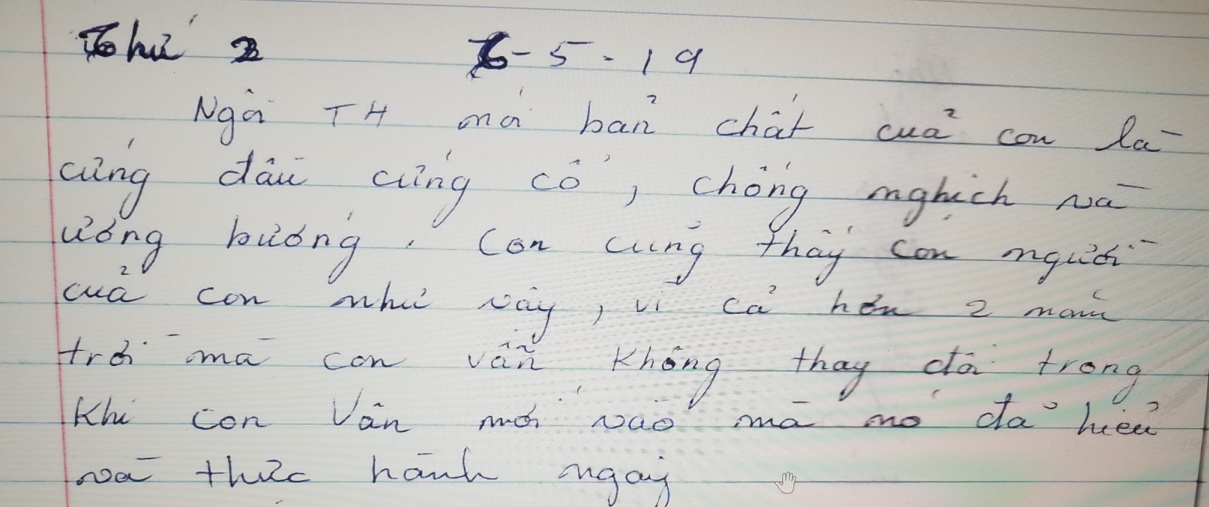 Thứ 2 6-5-19
Ngôi TH nói bản chất của con là
cứng đầu cứng cổ, chống nghịch và
ương bướng. Con cũng thấy con người
của con như vậy, vì cả hơn 2 năm
trời mà con vẫn không thay đổi trong
khi con Vân mới vào mà nó đã hiểu
và thực hành ngay